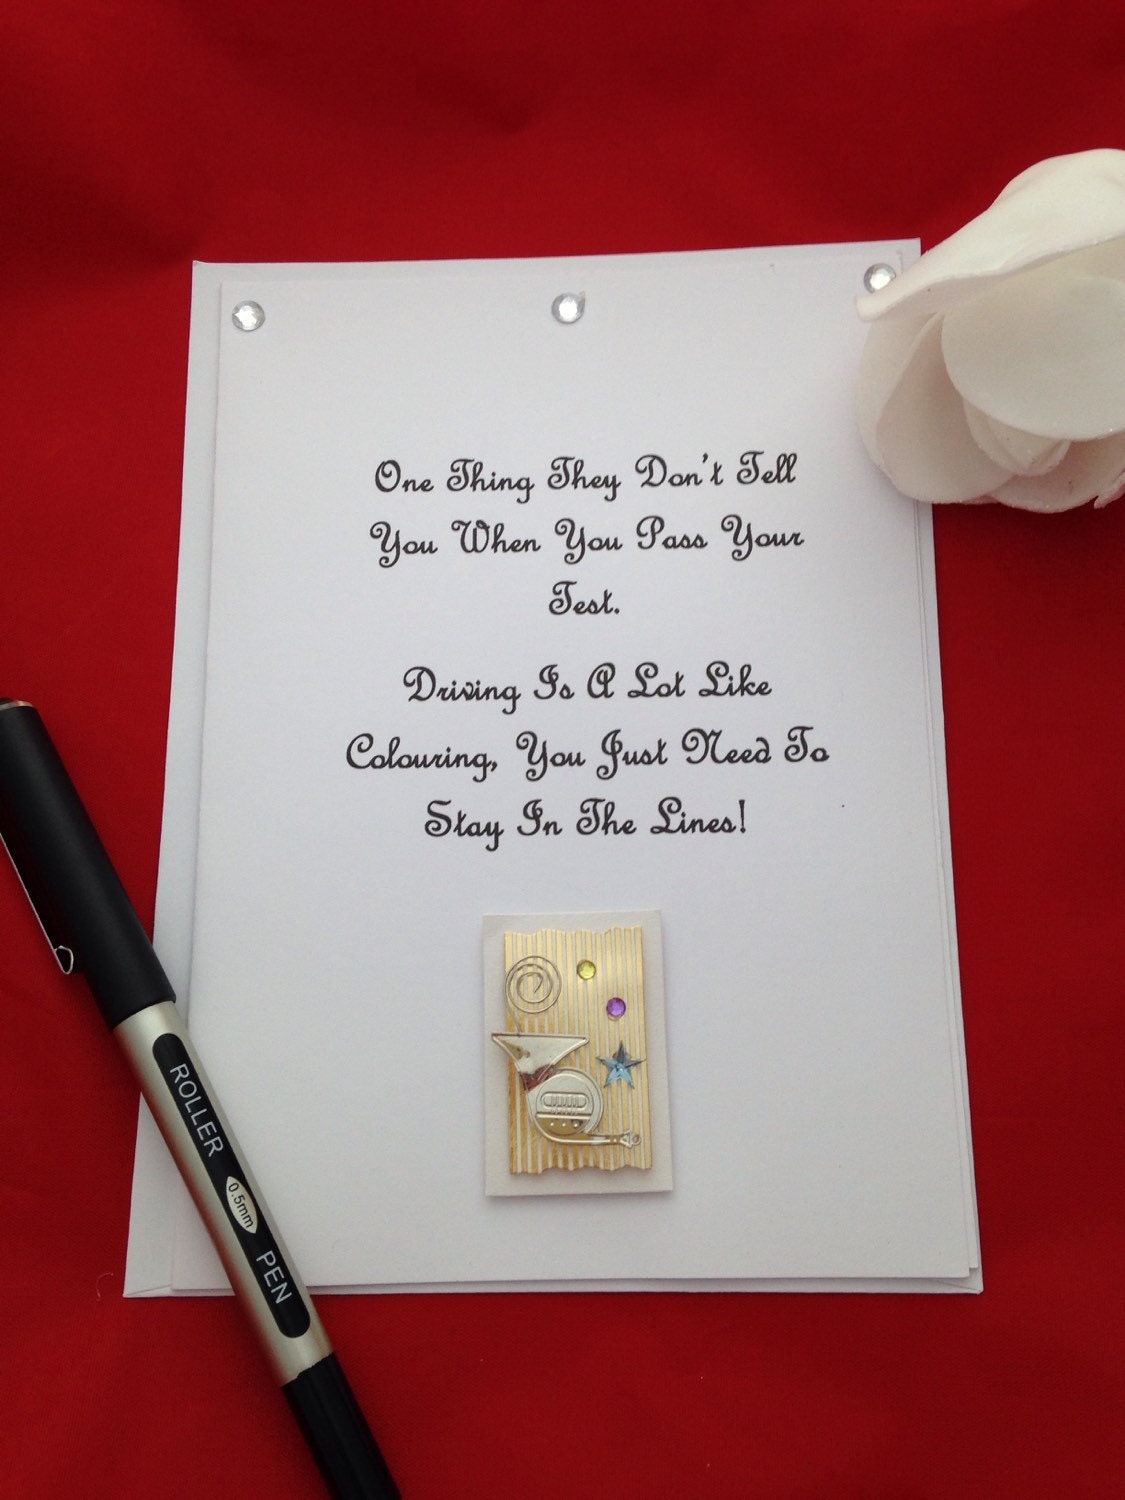 One Thing They Don't Tell
You When You Pass Your
Test.
Driving Is A Lot Like
Colouring, You Just Need To
Stay In The Lines!
ROLLER
0.5mm
PEN